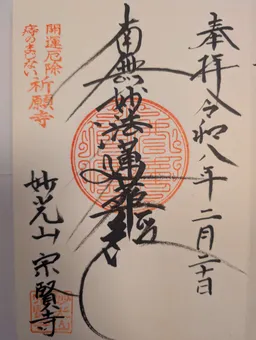 奉拝 令和八年二月二十日
南無妙法蓮華経
開運厄除
祈願寺
妙光山 宗賢寺